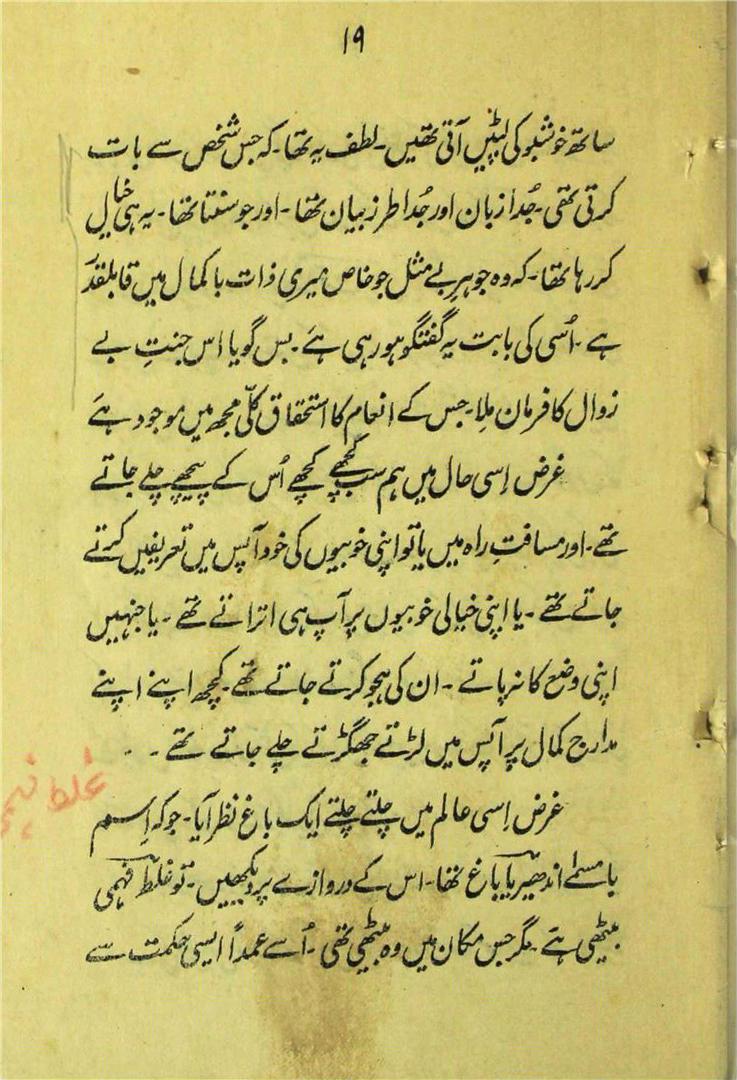 ۱۹
ساتھ خوشبو کی لپٹیں آتی تھیں۔ لطف یہ تھا۔ کہ جس شخص سے بات
کرتی تھی۔ جُدا زبان اور جُدا طرز بیان تھا۔ اور جو سنتا تھا۔ یہ ہی خیال
کر رہا تھا۔ کہ وہ جوہرِ بے مثل جو خاص میری ذات با کمال میں قابلقدر
ہے۔ اُسی کی بابت یہ گفتگو ہو رہی ہَے۔ بس گویا اس جنتِ بے
زوال کا فرمان مِلا۔ جس کے انعام کا استحقاق کلّی مجھ میں موجود ہَے
غرض اِسی حال میں ہم سب کھچے کھچے اُس کے پیچھے چلے جاتے
تھے۔ اور مسافتِ راہ میں یا تو اپنی خوبیوں کی خود آپس میں تعریفیں کرتے
جاتے تھے۔ یا اپنی خیالی خوبیوں پر آپ ہی اتراتے تھے۔ یا جنہیں
اپنی وضع کا نہ پاتے۔ ان کی ہجو کرتے جاتے تھے۔ کچھ اپنے اپنے
مدارج کمال پر آپس میں لڑتے جھگڑتے چلے جاتے تھے۔۔۔
غرض اِسی عالم میں چلتے چلتے ایک باغ نظر آیا۔ جو کہ اِسم
بامسمٰے اندھیریا باغ تھا۔ اس کے دروازے پر دیکھیں۔ تو غلط فہمی
بیٹھی ہَے۔ مگر جس مکان میں وہ بیٹھی تھی۔ اُسے عمداً ایسی حکمت سے
غلط فہمی